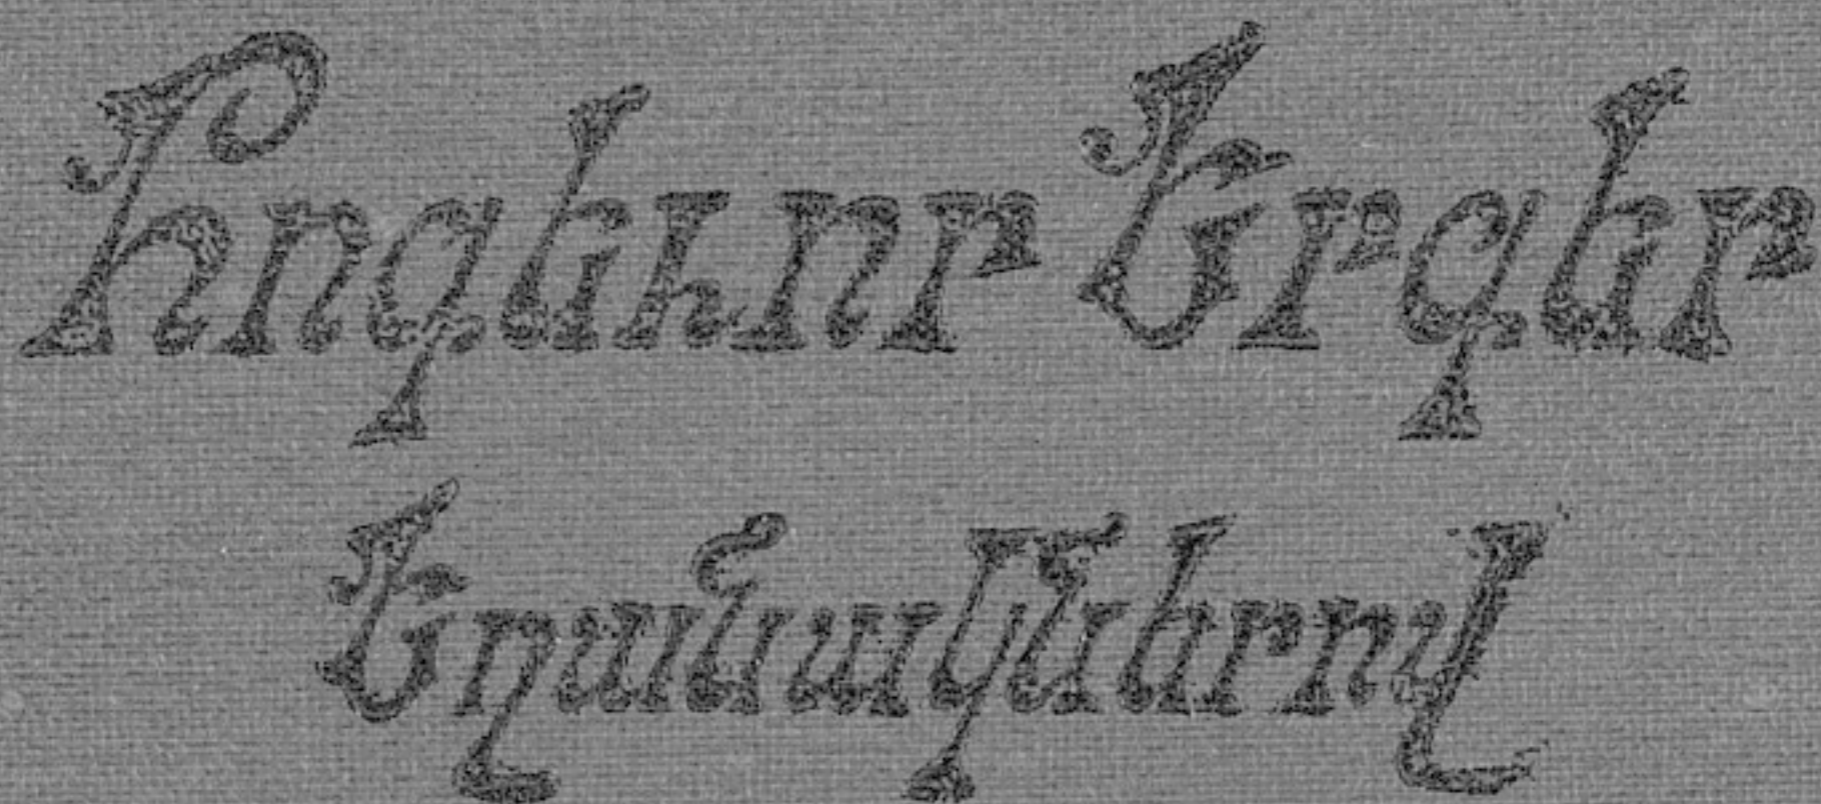 Հոգեւոր Երգեր
Եղանակներով